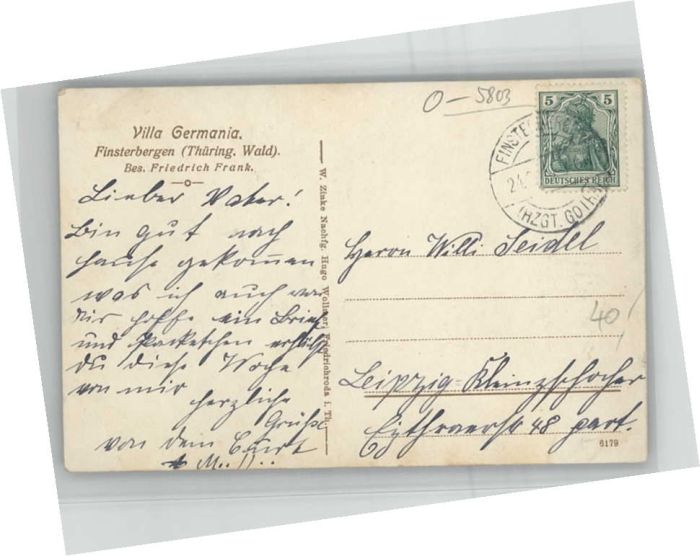 Villa Germania.
Finsterbergen (Thüring. Wald).
Bes. Friedrich Frank.
Lieber Vater!
Bin gut nach
Hause gekommen
was ich auch von
Dir hoffe ein Brief
und Packetchen erhälst
Du diese Woche
von mir
herzliche
Grüße
von dem Curt
W. Zinke Nachfg. Hugo Wollner, Friedrichroda i. Th.
O – 5803
5 5
DEUTSCHES REICH
FINSTERBERGEN
(HZGT. GOTHA)
Herrn Willi Seidel
40
Leipzig-Kleinzschocher
Eythraerstr 48 part.
6179